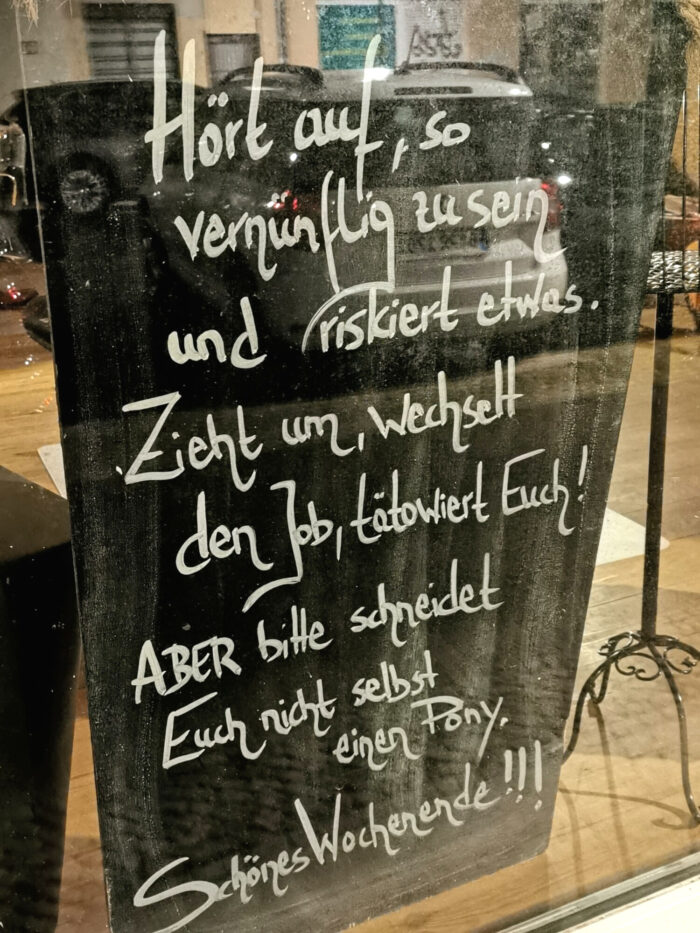 Hört auf, so
vernünftig zu sein
und riskiert etwas.
Zieht um, wechselt
den Job, tätowiert Euch!
ABER bitte schneidet
Euch nicht selbst
einen Pony.
Schönes Wochenende!!!